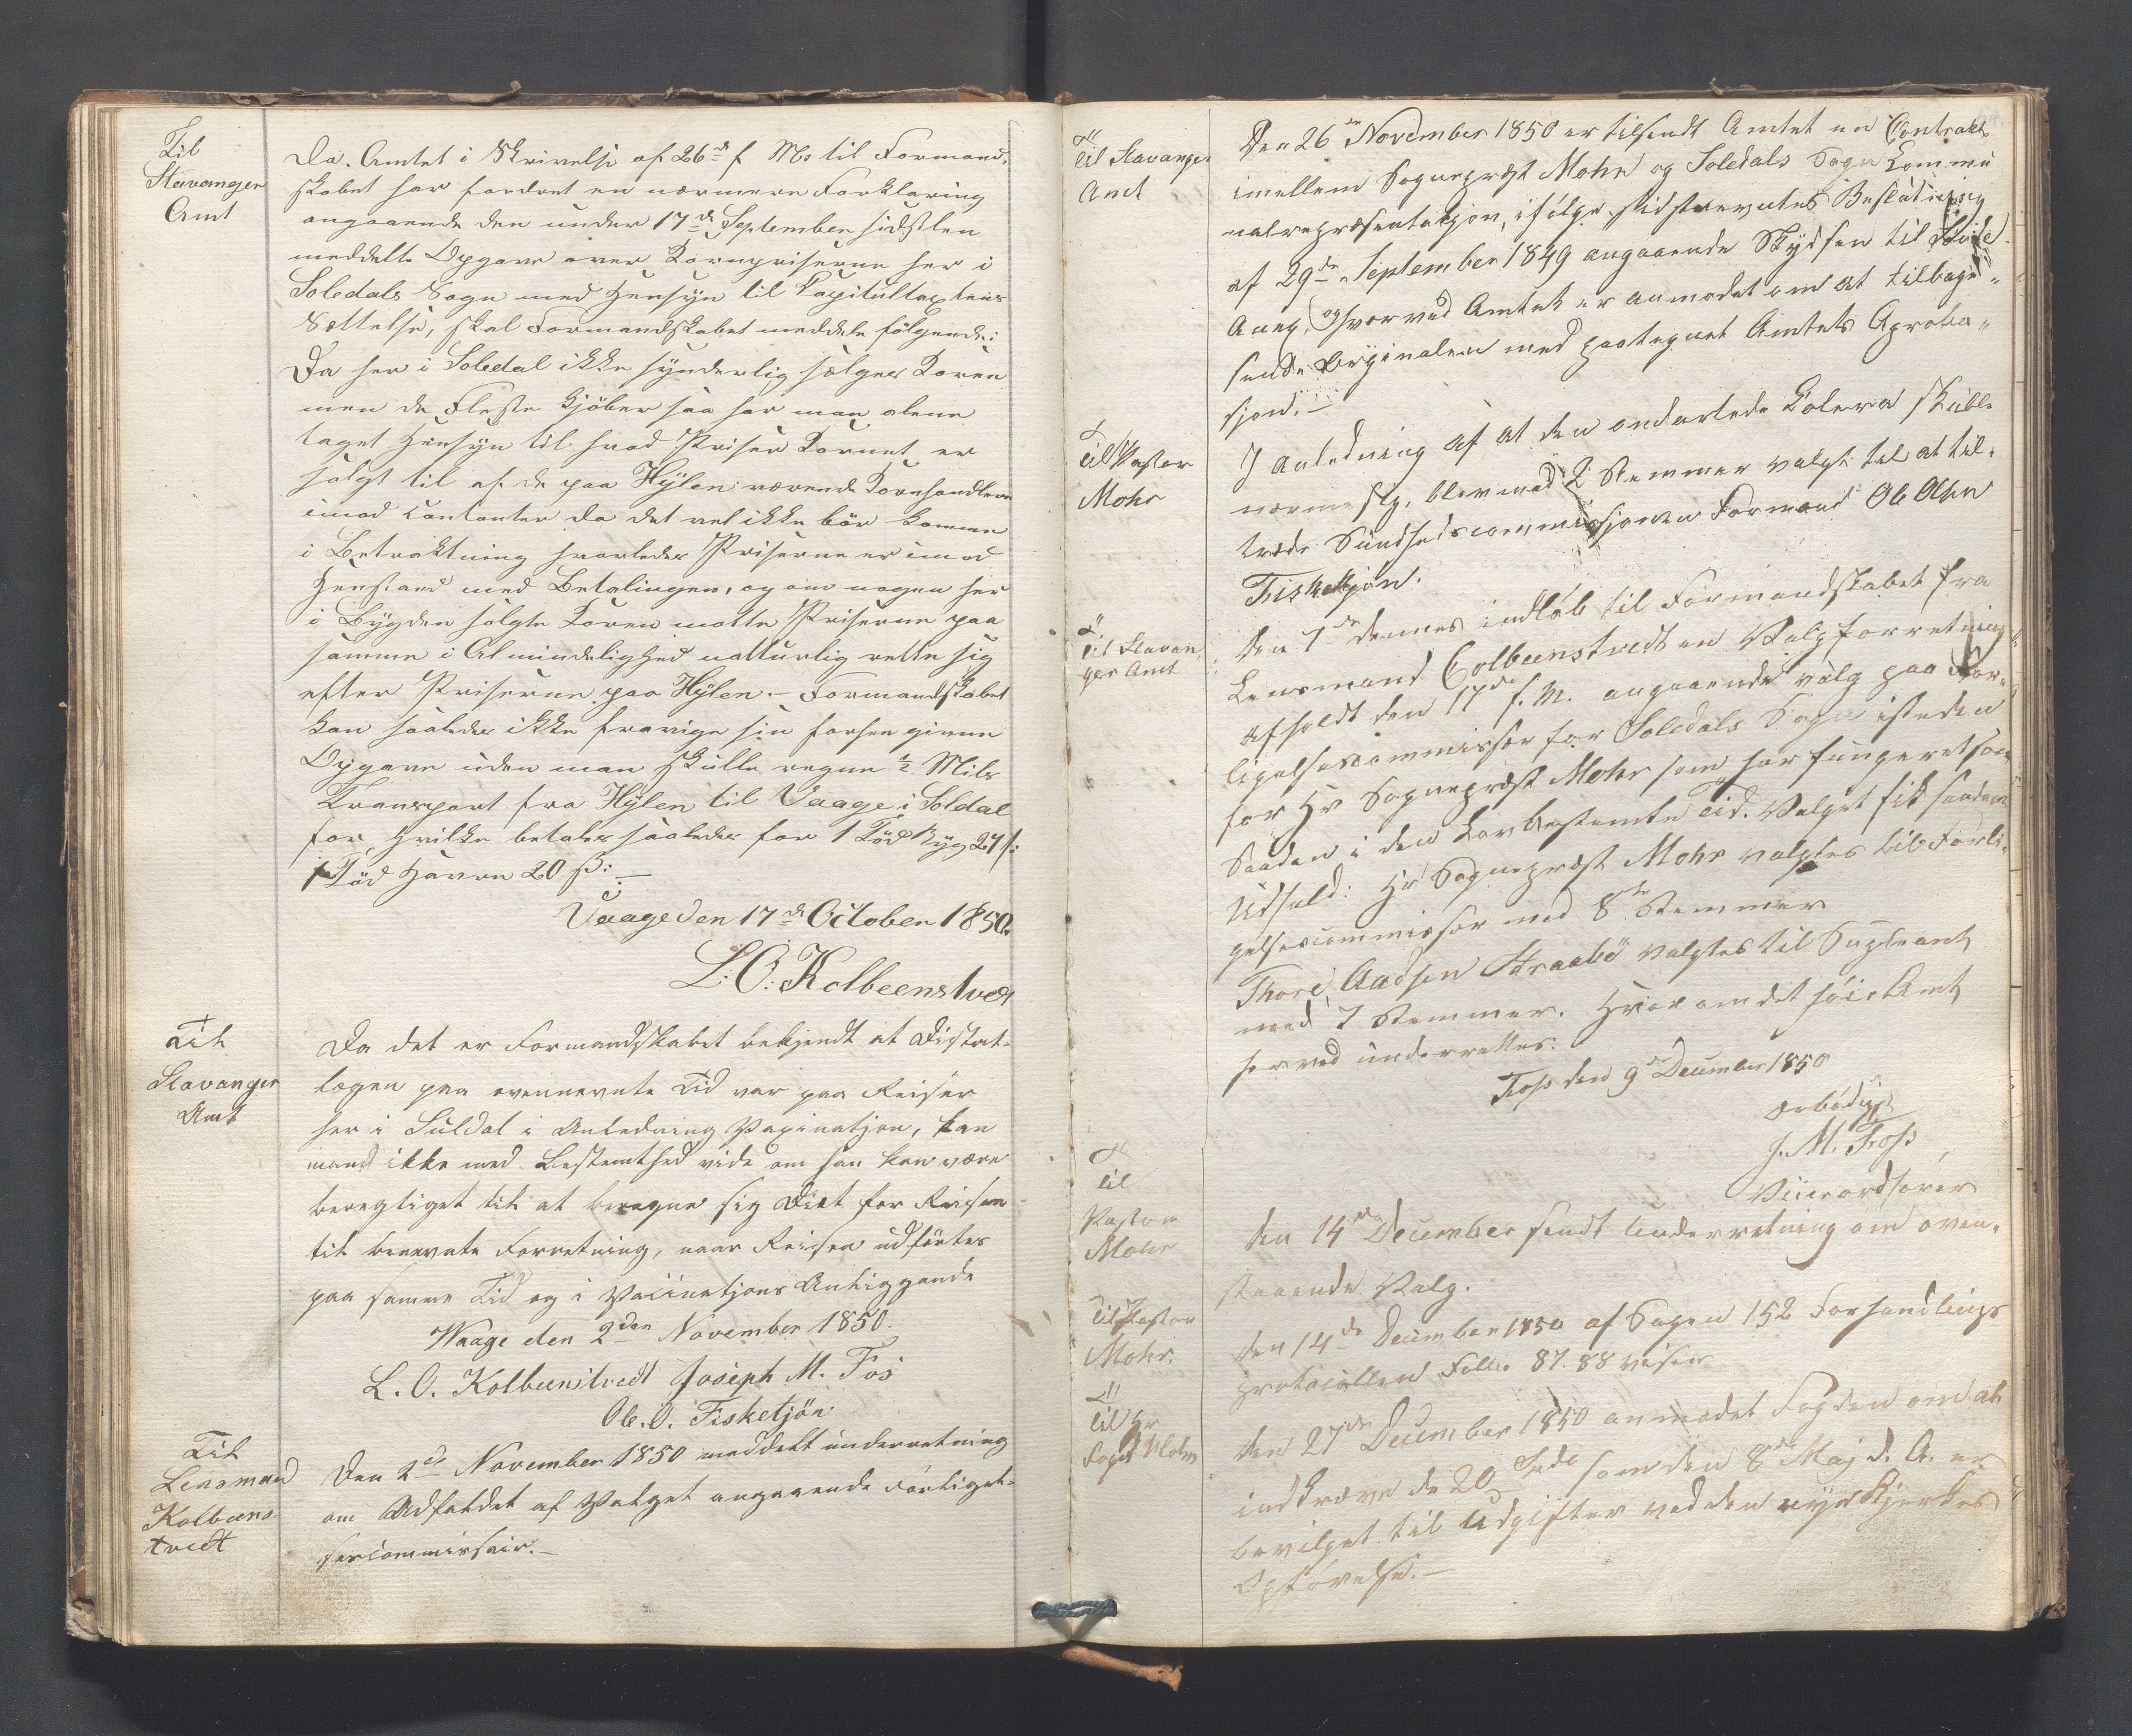 Til
Stavanger
Amt
Da Amtet i Skrivelse af 26de f. M: til Formand-
skabet har fordret en nærmere Forklaring
angaaende den under 17de September sidstlen
meddelte Opgave over Kornpriserne her i
Soledals Sogn med Hensyn til Capitultaxtens
Sættelse, skal Formandskabet meddele følgende:
Da her i Soledal ikke synderlig sælges Koren
men de Fleste kjöber saa har man alene
taget Hensyn til hvad Priser Kornet er
solgt til af de paa Hylen værende Kornhandlere
imod Contanter da det vel ikke bör komme
i Betraktning hvorledes Priserne er imod
Henstand med Betalingen, og om nogen her
i Bygden solgte Koren maatte Priserne paa
samme i Almindelighed natturlig rette sig
efter Priserne paa Hylen. – Formandskabet
kan saaledes ikke fravige sin forhen givne
Opgave uden man skulle regne ½ Mils
Transport fra Hylen til Vaage i Soldal
for, hvilke betales saaledes for 1 Töd Byg 24 ß:
1 Töd Havre 20 ß: –
Vaage den 17de October 1850.
L: O: Kolbeenstvedt
Til
Stavanger
Amt
Da det er Formandskabet bekjendt at Distrikt-
lægen paa ovennevnte Tid var paa Reiser
her i Suldal i Anledning Vaxinatjon, kan
mand ikke med Bestemthed vide om han kan være
beregtiget til at beregne sig Diet for Reisen
til benevnte Forretning, naar Reisen udförtes
paa samme Tid og i Vaccinatjons Anliggende
Waage den 2den November 1850.
L. O. Kolbeenstvedt Joseph M. Fos
Ole. O. Fisketjön
Til
Lensmand
Kolbeens
tvedt
Den 2de November 1850 meddelt underretning
om Udfaldet af Valget angaaende Forligel-
sescommissair. –
Til Stavanger
Amt
Den 26de November 1850 er tilsendt Amtet en Contrakt
imellem Sognepræst Mohr og Soledals Sogn Commu
nalrepræsentatjon, ifölge sidstnevntes Beslutning
af 29de September 1849 angaaende Skydsen til
Aneg, og hvorved Amtet er anmodet om at tilbage-
sende Orginalen med paategnet Amtets Aproba-
sjon. –
Til Pastor
Mohr
I Anledning af at den ondartede Colera skulle
nærme sig, blev med 2 Stemmer valgt til at til-
træde Sundhedscommissjonen Formand Ole Olsen
Fisketjön.
Til Stavan
ger Amt
Den 7de dennes indlöb til Formandskabet fra
Lensmand Colbeenstvedt en Valgforretning
afholdt den 17de f. M. angaaende valg paa For-
ligelsescommissær for Soledals Sogn isteden
for Hr Sognepræst Mohr som har fungeret som
Saadan i den Lovbestemte Tid. Valget fik saadant
Udfald: Hr Sognepræst Mohr valgtes til Forli-
gelsescommissær med 8te Stemmer
Thore Aadsen Straabö valgtes til Supleant
med 7 Stemmer. Hvorom det höie Amt
herved underrettes.
Foss den 9de December 1850
Ærbödigst
J. M. Foss
Viiceordförer
Til
Pastor
Mohr
Den 14de December sendt Underretning om oven-
staaende Valg.
Til Pastor
Mohr.
Den 14de December 1850 af Sagen 152 Forhandlings
protocollen Follio 87. 88 viser
Til Hr
Foged Holm
Den 27de December 1850 anmodet Fogden om at
indkræve de 20 Spd som den 8de Maj d. A. er
bevilget til Udgifter ved den nye Kjerkes
Opförelse. –